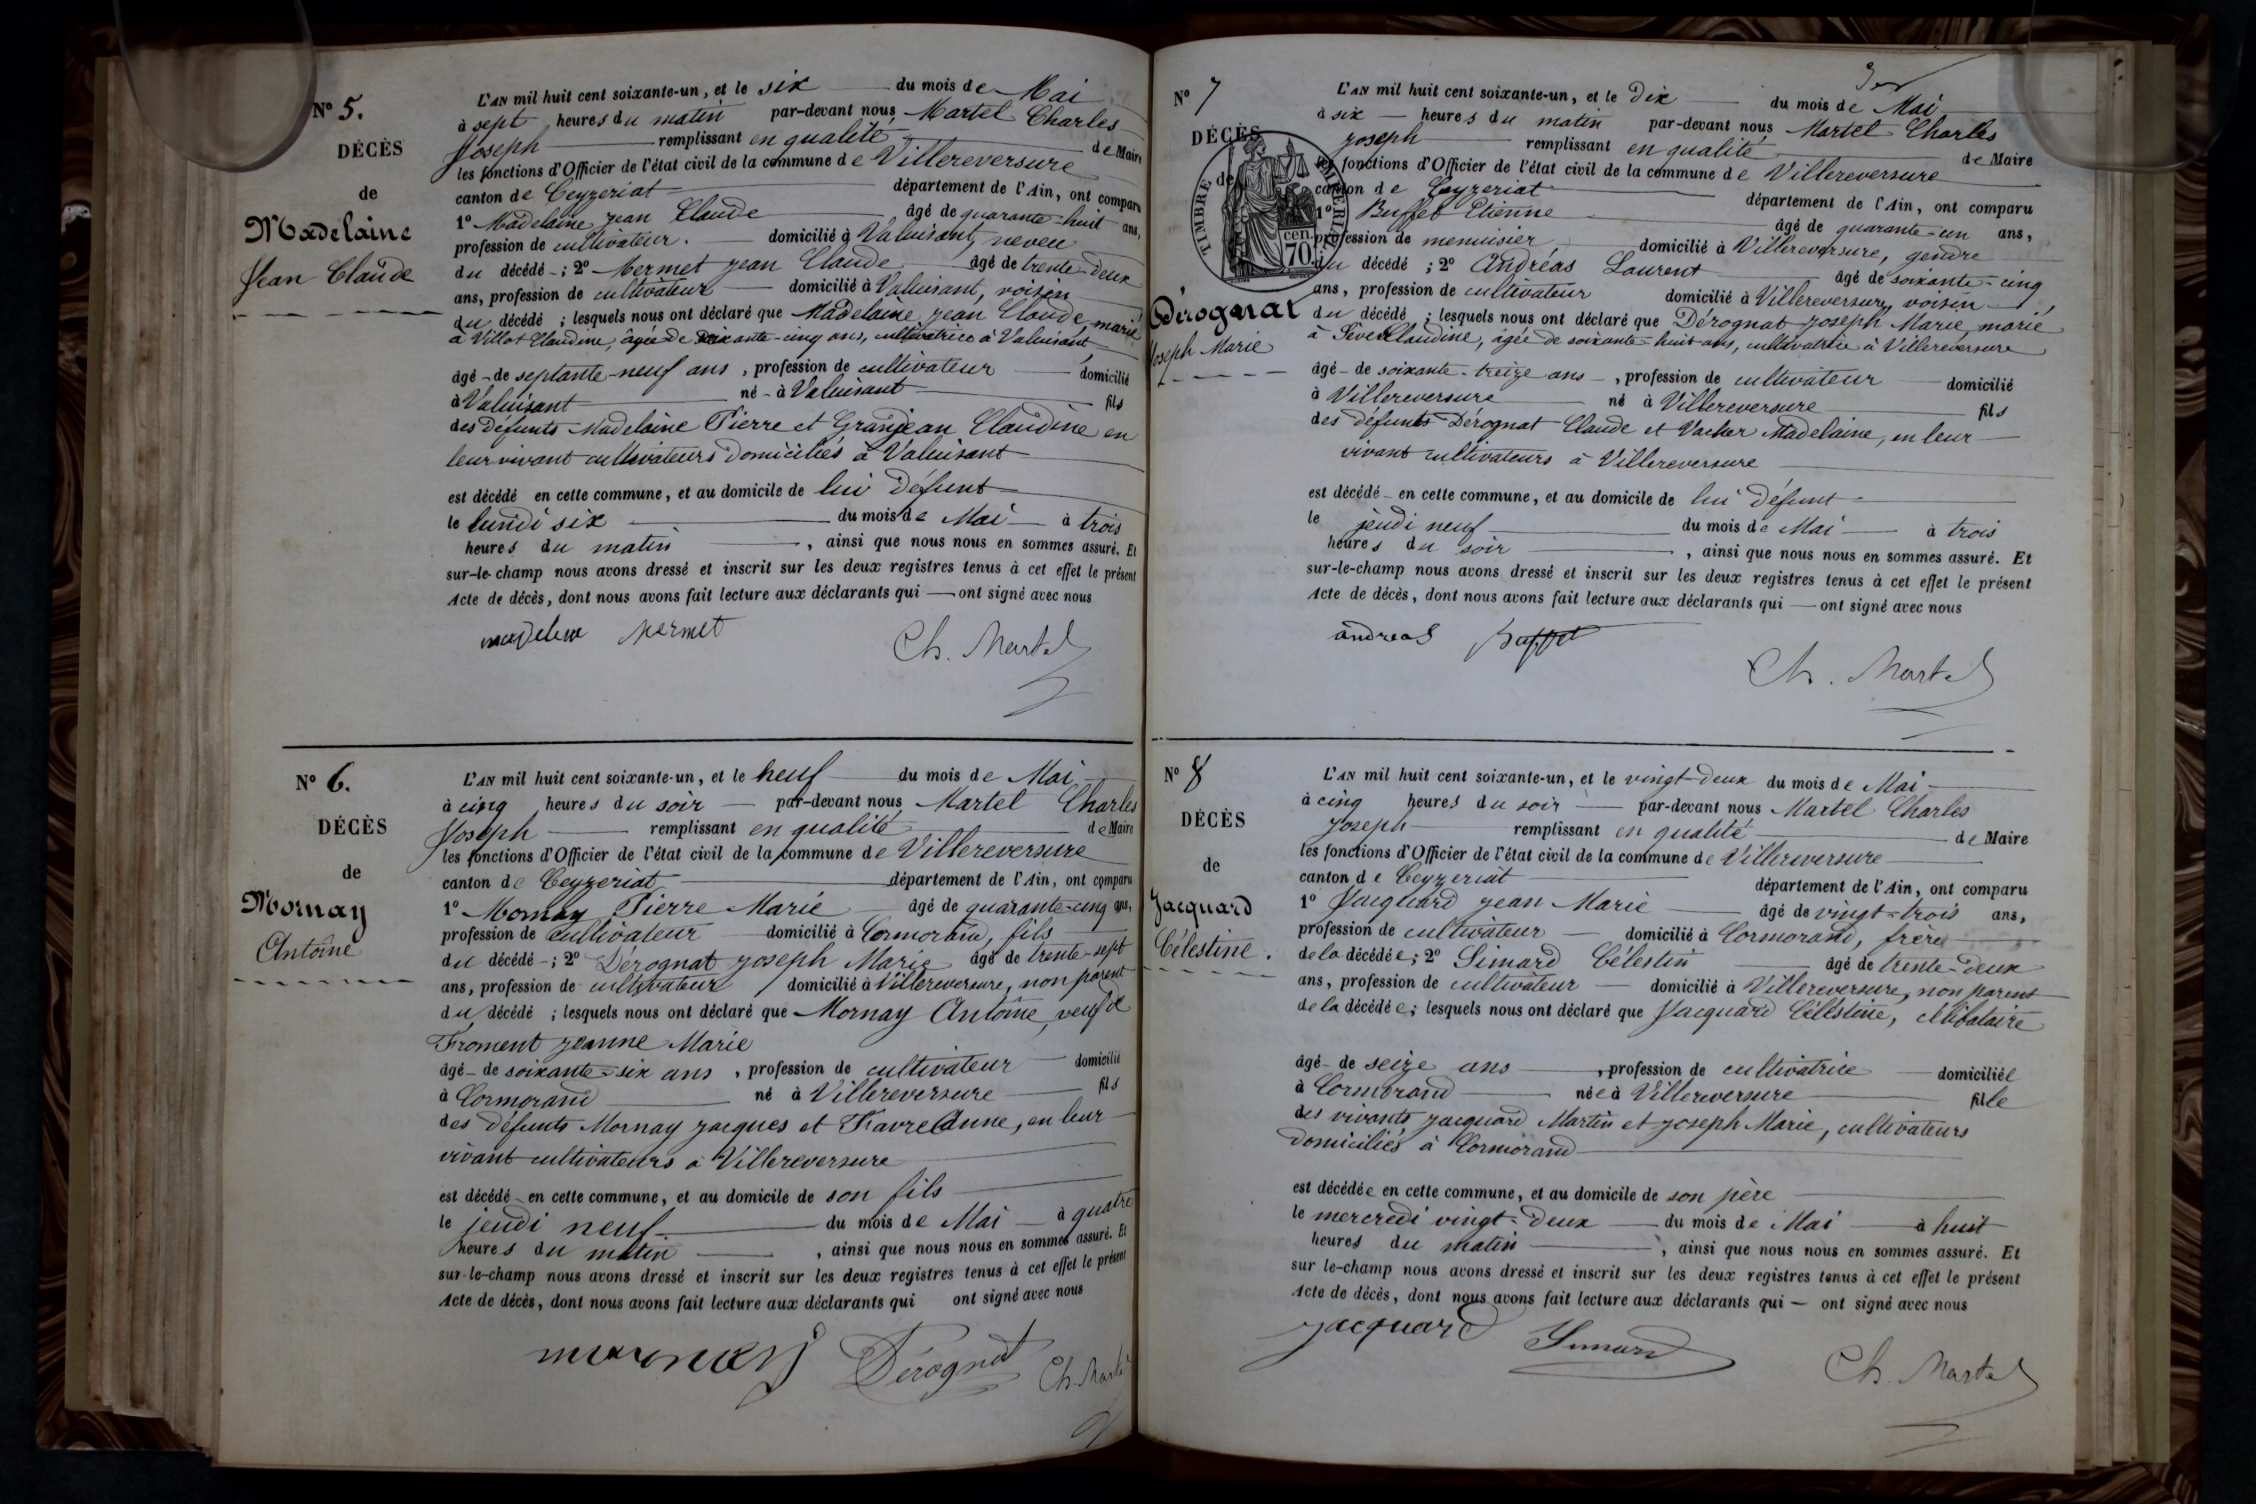 N° 5.
DÉCÈS
de
Madelaine
Jean Claude
L'AN mil huit cent soixante-un, et le six du mois de Mai
à sept heures du matin par-devant nous Martel Charles
Joseph remplissant en qualité de Maire
les fonctions d'Officier de l'état civil de la commune de Villereversure
canton de Ceyzeriat département de l'Ain, ont comparu
1° Madelaine Jean Claude âgé de quarante-huit ans,
profession de cultivateur. domicilié à Valuisant, neveu
du décédé ; 2° Mermet Jean Claude âgé de trente-deux
ans, profession de cultivateur domicilié à Valuisant, voisin
du décédé ; lesquels nous ont déclaré que Madelaine Jean Claude, marié
à Villot Claudine, âgée de soixante-cinq ans, cultivatrice à Valuisant
âgé de septante-neuf ans, profession de cultivateur domicilié
à Valuisant né à Valuisant fils
des défunts Madelaine Pierre et Granjean Claudine en
leur vivant cultivateurs domiciliés à Valuisant
est décédé en cette commune, et au domicile de lui défunt
le lundi six du mois de Mai à trois
heures du matin, ainsi que nous nous en sommes assuré. Et
sur-le-champ nous avons dressé et inscrit sur les deux registres tenus à cet effet le présent
Acte de décès, dont nous avons fait lecture aux déclarants qui ont signé avec nous
Mermet Ch. Martel
N° 6.
DÉCÈS
de
Mornay
Antoine
L'AN mil huit cent soixante-un, et le neuf du mois de Mai
à cinq heures du soir par-devant nous Martel Charles
Joseph remplissant en qualité de Maire
les fonctions d'Officier de l'état civil de la commune de Villereversure
canton de Ceyzeriat département de l'Ain, ont comparu
1° Mornay Pierre Marie âgé de quarante-cinq ans,
profession de cultivateur domicilié à Cormorand, fils
du décédé ; 2° Dérognat Joseph Marie âgé de trente-sept
ans, profession de cultivateur domicilié à Villereversure, non parent
du décédé ; lesquels nous ont déclaré que Mornay Antoine, veuf de
Froment Jeanne Marie
âgé de soixante-six ans, profession de cultivateur domicilié
à Cormorand né à Villereversure fils
des défunts Mornay Jacques et Favre Anne, en leur
vivant cultivateurs à Villereversure
est décédé en cette commune, et au domicile de son fils
le jeudi neuf du mois de Mai à quatre
heures du matin, ainsi que nous nous en sommes assuré. Et
sur-le-champ nous avons dressé et inscrit sur les deux registres tenus à cet effet le présent
Acte de décès, dont nous avons fait lecture aux déclarants qui ont signé avec nous
mornay Dérognat Ch. Martel
N° 7
DÉCÈS
de
TIMBRE IMPÉRIAL
70 cen.
Dérognat
Joseph Marie
L'AN mil huit cent soixante-un, et le dix du mois de Mai
à six heures du matin par-devant nous Martel Charles
Joseph remplissant en qualité de Maire
les fonctions d'Officier de l'état civil de la commune de Villereversure
canton de Ceyzeriat département de l'Ain, ont comparu
1° Buffet Etienne âgé de quarante-un ans,
profession de menuisier domicilié à Villereversure, gendre
du décédé ; 2° Andréas Laurent âgé de soixante-cinq
ans, profession de cultivateur domicilié à Villereversure, voisin
du décédé ; lesquels nous ont déclaré que Dérognat Joseph Marie, marié
à Sève Claudine, âgée de soixante-huit ans, cultivatrice à Villereversure
âgé de soixante-treize ans, profession de cultivateur domicilié
à Villereversure né à Villereversure fils
des défunts Dérognat Claude et Vacher Madelaine, en leur
vivant cultivateurs à Villereversure
est décédé en cette commune, et au domicile de lui défunt
le jeudi neuf du mois de Mai à trois
heures du soir, ainsi que nous nous en sommes assuré. Et
sur-le-champ nous avons dressé et inscrit sur les deux registres tenus à cet effet le présent
Acte de décès, dont nous avons fait lecture aux déclarants qui ont signé avec nous
andreas buffet
Ch. Martel
N° 8
DÉCÈS
de
Jacquard
Célestine.
L'AN mil huit cent soixante-un, et le vingt-deux du mois de Mai
à cinq heures du soir par-devant nous Martel Charles
Joseph remplissant en qualité de Maire
les fonctions d'Officier de l'état civil de la commune de Villereversure
canton de Ceyzeriat département de l'Ain, ont comparu
1° Jacquard Jean Marie âgé de vingt-trois ans,
profession de cultivateur domicilié à Cormorand, frère
de la décédée ; 2° Simard Célestin âgé de trente-deux
ans, profession de cultivateur domicilié à Villereversure, non parent
de la décédée ; lesquels nous ont déclaré que Jacquard Célestine, célibataire
âgé de seize ans, profession de cultivatrice domiciliée
à Cormorand née à Villereversure fille
des vivants Jacquard Martin et Joseph Marie, cultivateurs
domiciliés à Cormorand
est décédée en cette commune, et au domicile de son père
le mercredi vingt-deux du mois de Mai à huit
heures du matin, ainsi que nous nous en sommes assuré. Et
sur le-champ nous avons dressé et inscrit sur les deux registres tenus à cet effet le présent
Acte de décès, dont nous avons fait lecture aux déclarants qui ont signé avec nous
Jacquard Simard Ch. Martel